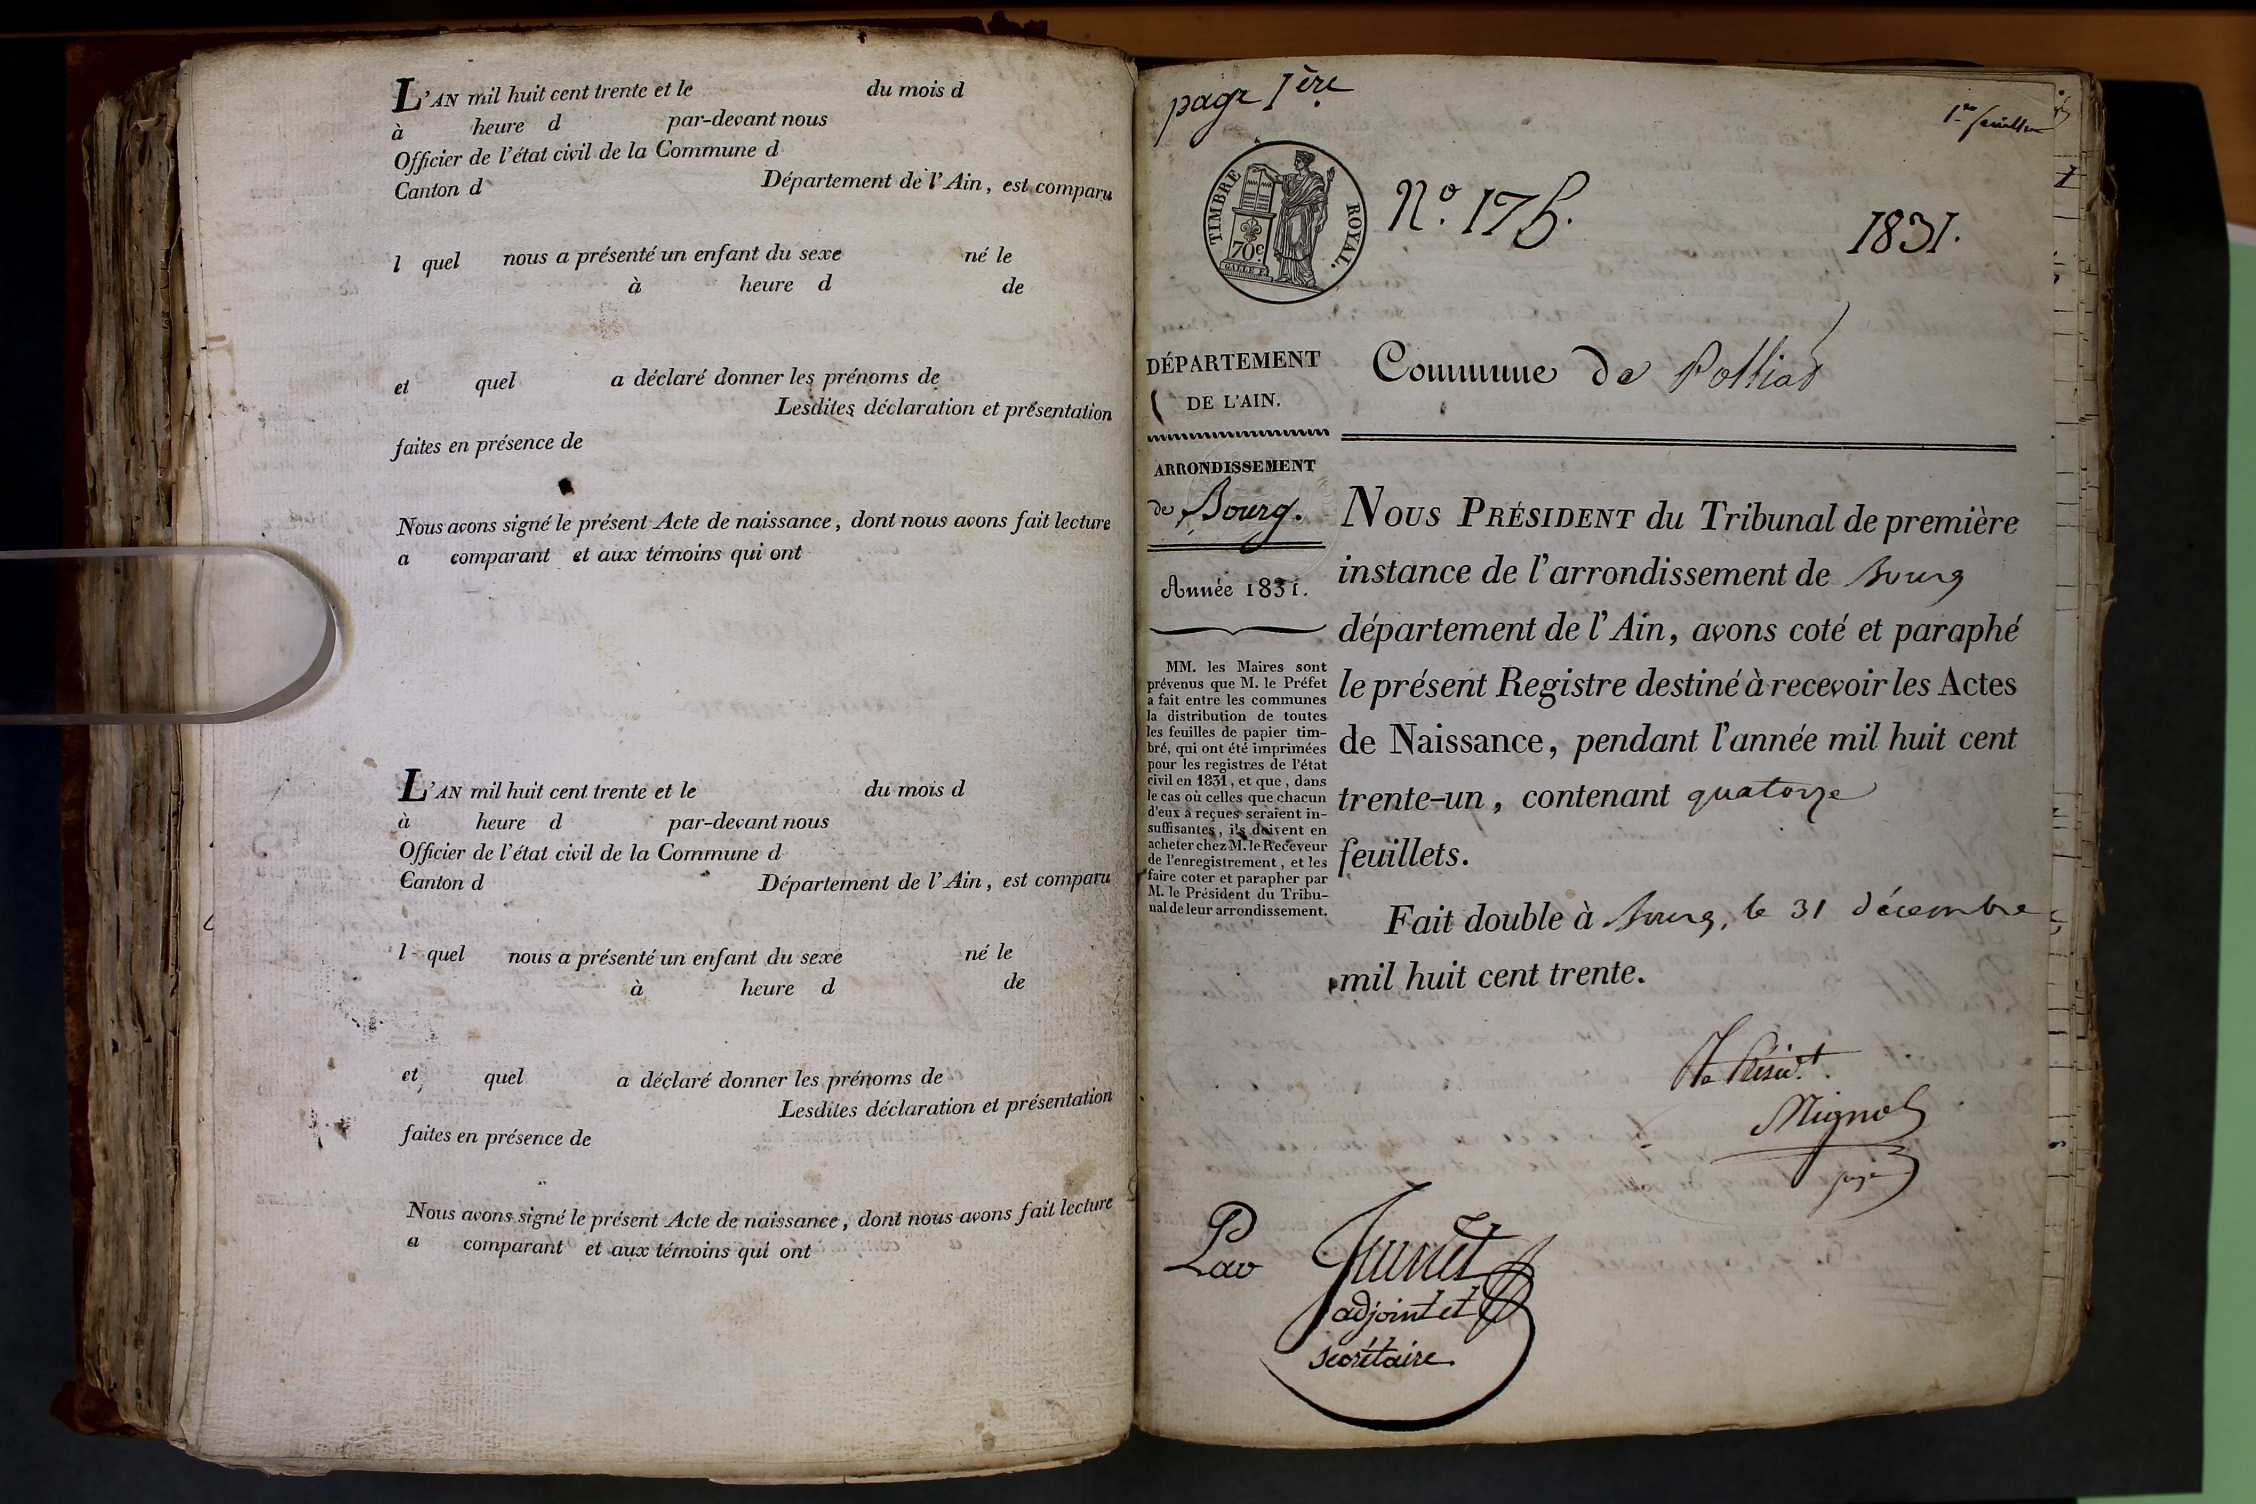 L'AN mil huit cent trente et le du mois d
à heure d par-devant nous
Officier de l'état civil de la Commune d
Canton d Département de l'Ain, est comparu
l quel nous a présenté un enfant du sexe né le
à heure d de
et quel a déclaré donner les prénoms de
Lesdites déclaration et présentation
faites en présence de
Nous avons signé le présent Acte de naissance, dont nous avons fait lecture
a comparant et aux témoins qui ont
L'AN mil huit cent trente et le du mois d
à heure d par-devant nous
Officier de l'état civil de la Commune d
Canton d Département de l'Ain, est comparu
l quel nous a présenté un enfant du sexe né le
à heure d de
et quel a déclaré donner les prénoms de
Lesdites déclaration et présentation
faites en présence de
Nous avons signé le présent Acte de naissance, dont nous avons fait lecture
a comparant et aux témoins qui ont
page 1ère
1er feuillet
TIMBRE ROYAL.
70c
N.º 175.
1831.
DÉPARTEMENT
DE L'AIN.
Commune de Polliat
ARRONDISSEMENT
de Bourg.
Année 1831.
MM. les Maires sont
prévenus que M. le Préfet
a fait entre les communes
la distribution de toutes
les feuilles de papier tim-
bré, qui ont été imprimées
pour les registres de l'état
civil en 1831, et que, dans
le cas où celles que chacun
d'eux a reçues seraient in-
suffisantes, ils doivent en
acheter chez M. le Receveur
de l'enregistrement, et les
faire coter et parapher par
M. le Président du Tribu-
nal de leur arrondissement.
NOUS PRÉSIDENT du Tribunal de première
instance de l'arrondissement de Bourg
département de l'Ain, avons coté et paraphé
le présent Registre destiné à recevoir les Actes
de Naissance, pendant l'année mil huit cent
trente-un, contenant quatorze
feuillets.
Fait double à Bourg, le 31 décembre
mil huit cent trente.
juge
adjoint et
secrétaire.